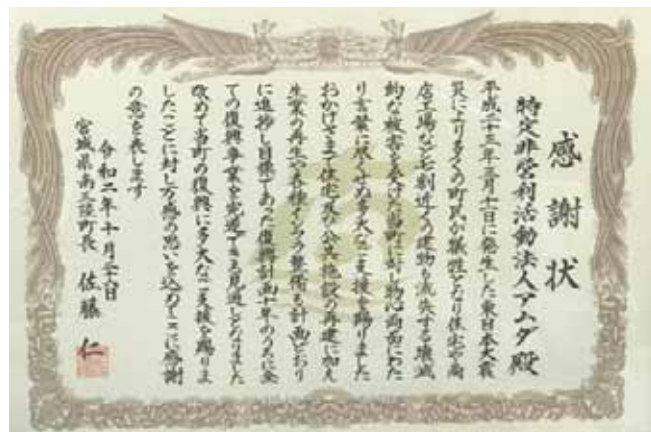 感謝状
特定非営利活動法人アムダ殿
平成二十三年三月十一日に発生した東日本大震
災により多くの町民が犠牲となり住宅や商
店工場など七割近くの建物も流失する壊滅
的な被害を受けた当町に対し物心両面にわた
り言葉に尽くせぬ多大なご支援を賜りました
おかげさまで住宅及び公共施設の再建に加え
生業の再生や各種インフラ整備も計画どおり
に進捗し目標であった復興計画十年のうちに全
ての復興事業を完遂できる見通しとなりました
改めて当町の復興に多大なご支援を賜りま
したことに対し万感の思いを込めてここに感謝
の意を表します
令和二年十月
宮城県南三陸町長 佐藤 仁